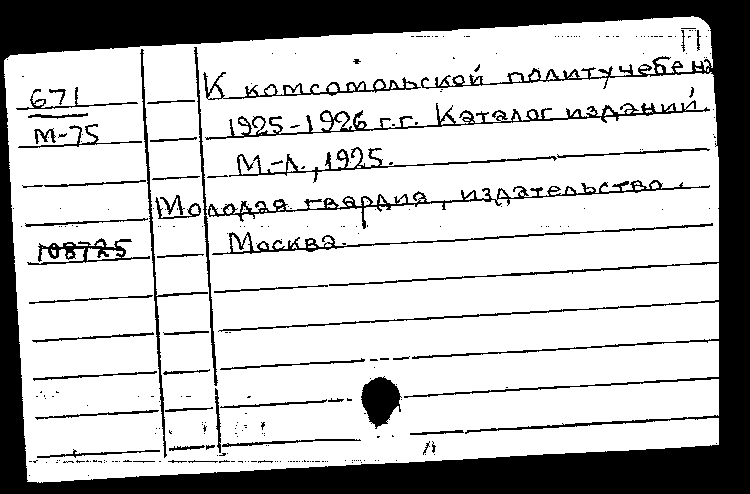 П
К комсомольской политучебе на
671
1925-1926 г.г. Каталог изданий.
М-75
М.-Л., 1925.
Молодая гвардия, издательство.
108725
Москва.